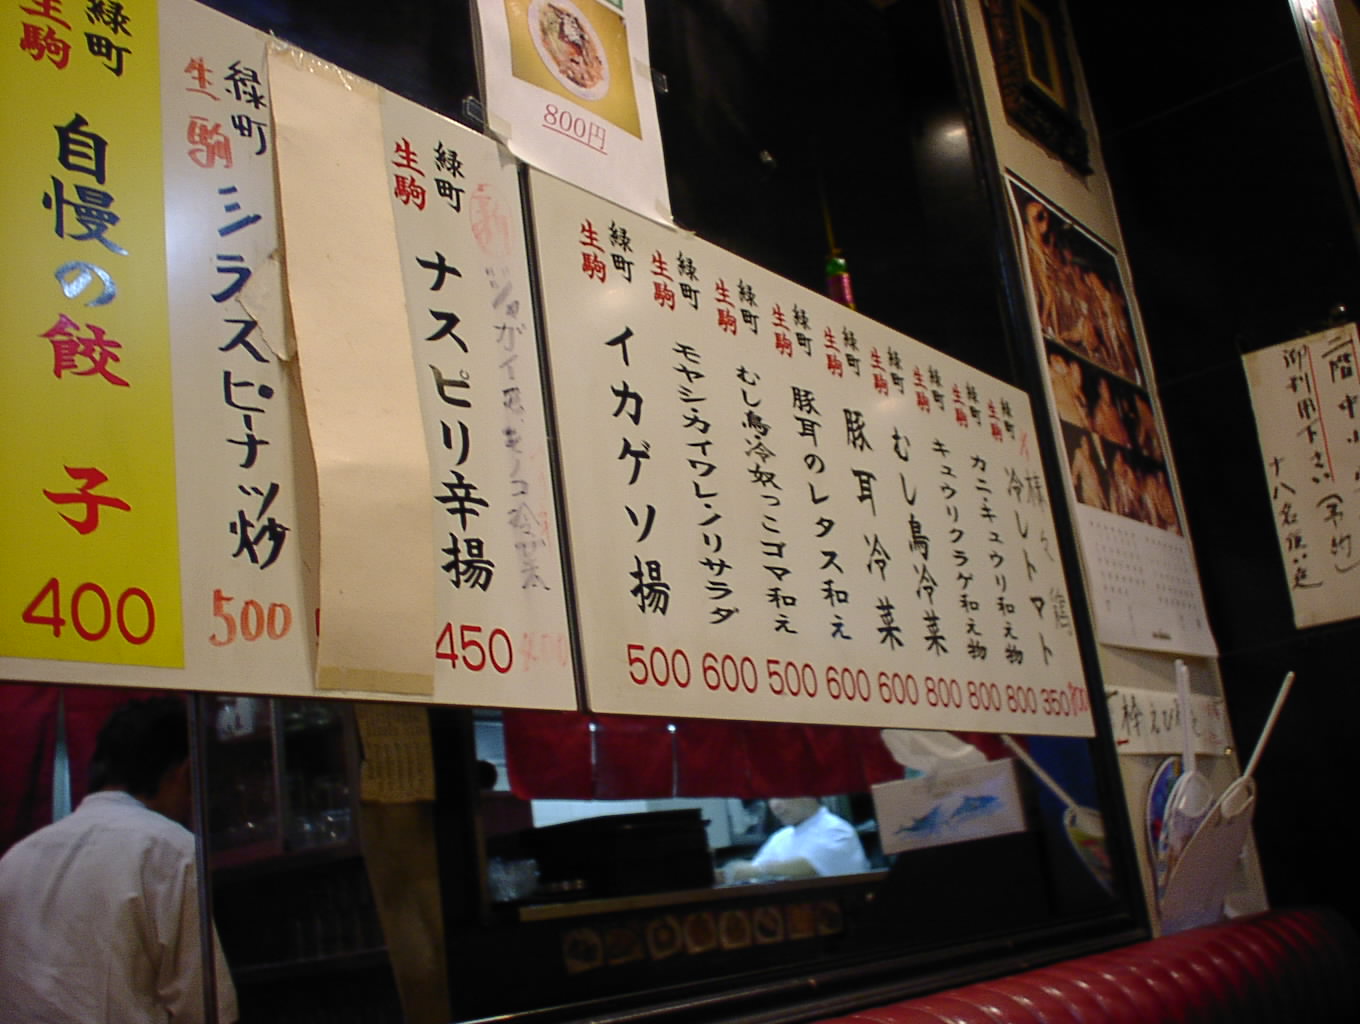 緑町
生駒
自慢の餃子
400
緑町
生駒
シラスピーナッツ炒
500
緑町
生駒
ナスピリ辛揚
450
800円
緑町
生駒
イカゲソ揚
500
緑町
生駒
モヤシ・カイワレンリサラダ
600
緑町
生駒
むし鳥冷奴っこゴマ和え
500
緑町
生駒
豚耳のレタス和え
600
緑町
生駒
豚耳冷菜
600
緑町
生駒
むし鳥冷菜
800
緑町
生駒
キュウリクラゲ和え物
800
緑町
生駒
カニ・キュウリ和え物
800
緑町
生駒
冷しトマト
350
御利用下さい